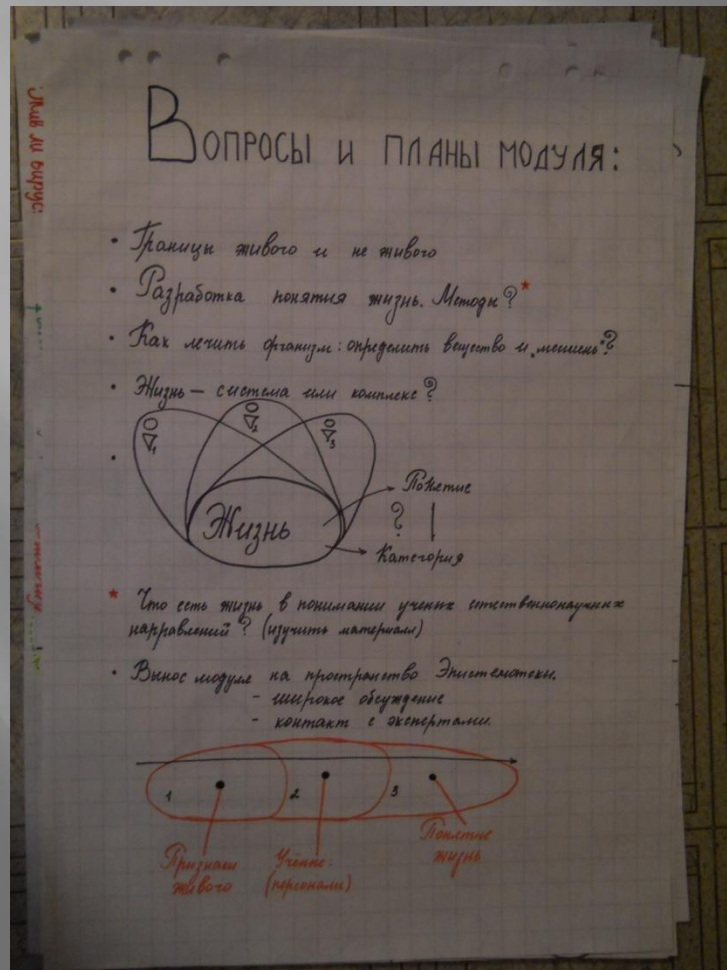 Вопросы и планы модуля:
• Границы живого и не живого
• Разработка понятия жизнь. Методы?*
• Как лечить организм: определить вещество и "мишень"?
• Жизнь — система или комплекс?
1
2
3
Понятие
Жизнь
?
Категория
* Что есть жизнь в понимании ученых естественнонаучных
направлений? (изучить материал)
• Вынос модуле на пространство Эпистематеки.
- широкое обсуждение
- контакт с экспертами.
1 2 3
Признаки
живого
Учёные.
(персонали)
Понятие
жизнь
Жив ли вирус: